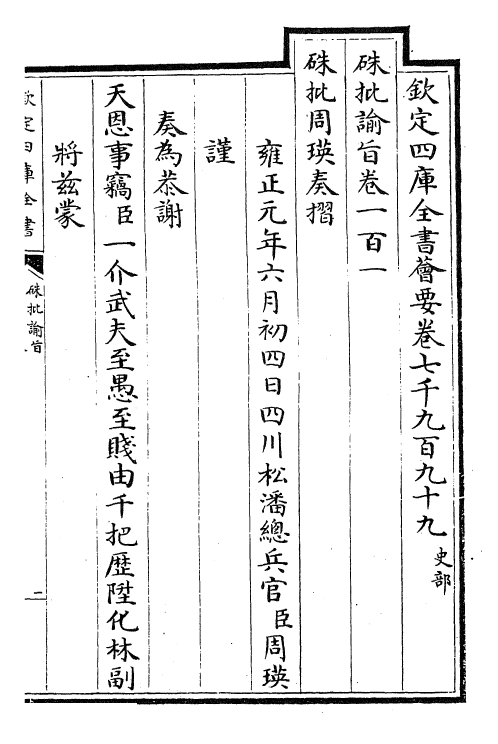 欽定四庫全書薈要卷七千九百九十九 史部
硃批諭旨卷一百一
硃批周瑛奏摺
雍正元年六月初四日四川松潘總兵官臣周瑛
謹
奏為恭謝
天恩事竊臣一介武夫至愚至賤由千把歴陞化林副
將兹蒙
欽定四庫全書
硃批諭旨
二